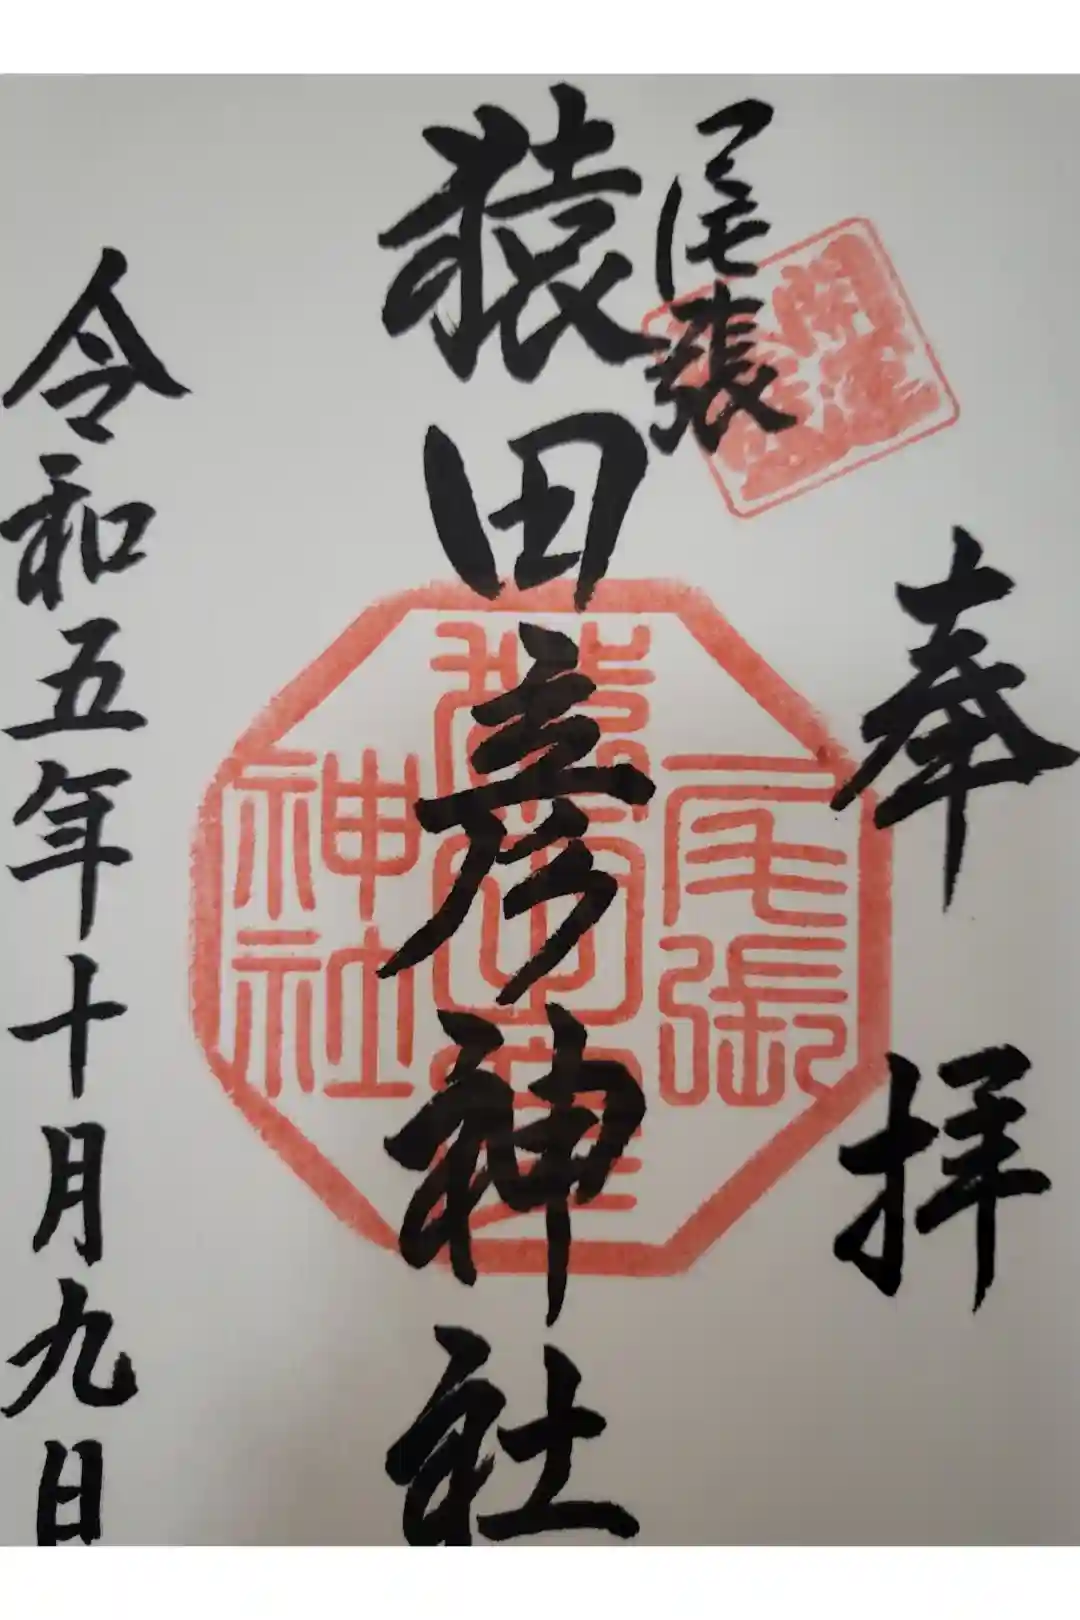 奉拝
尾張
猿田彦神社
尾張
猿田彦
神社
令和五年十月九日